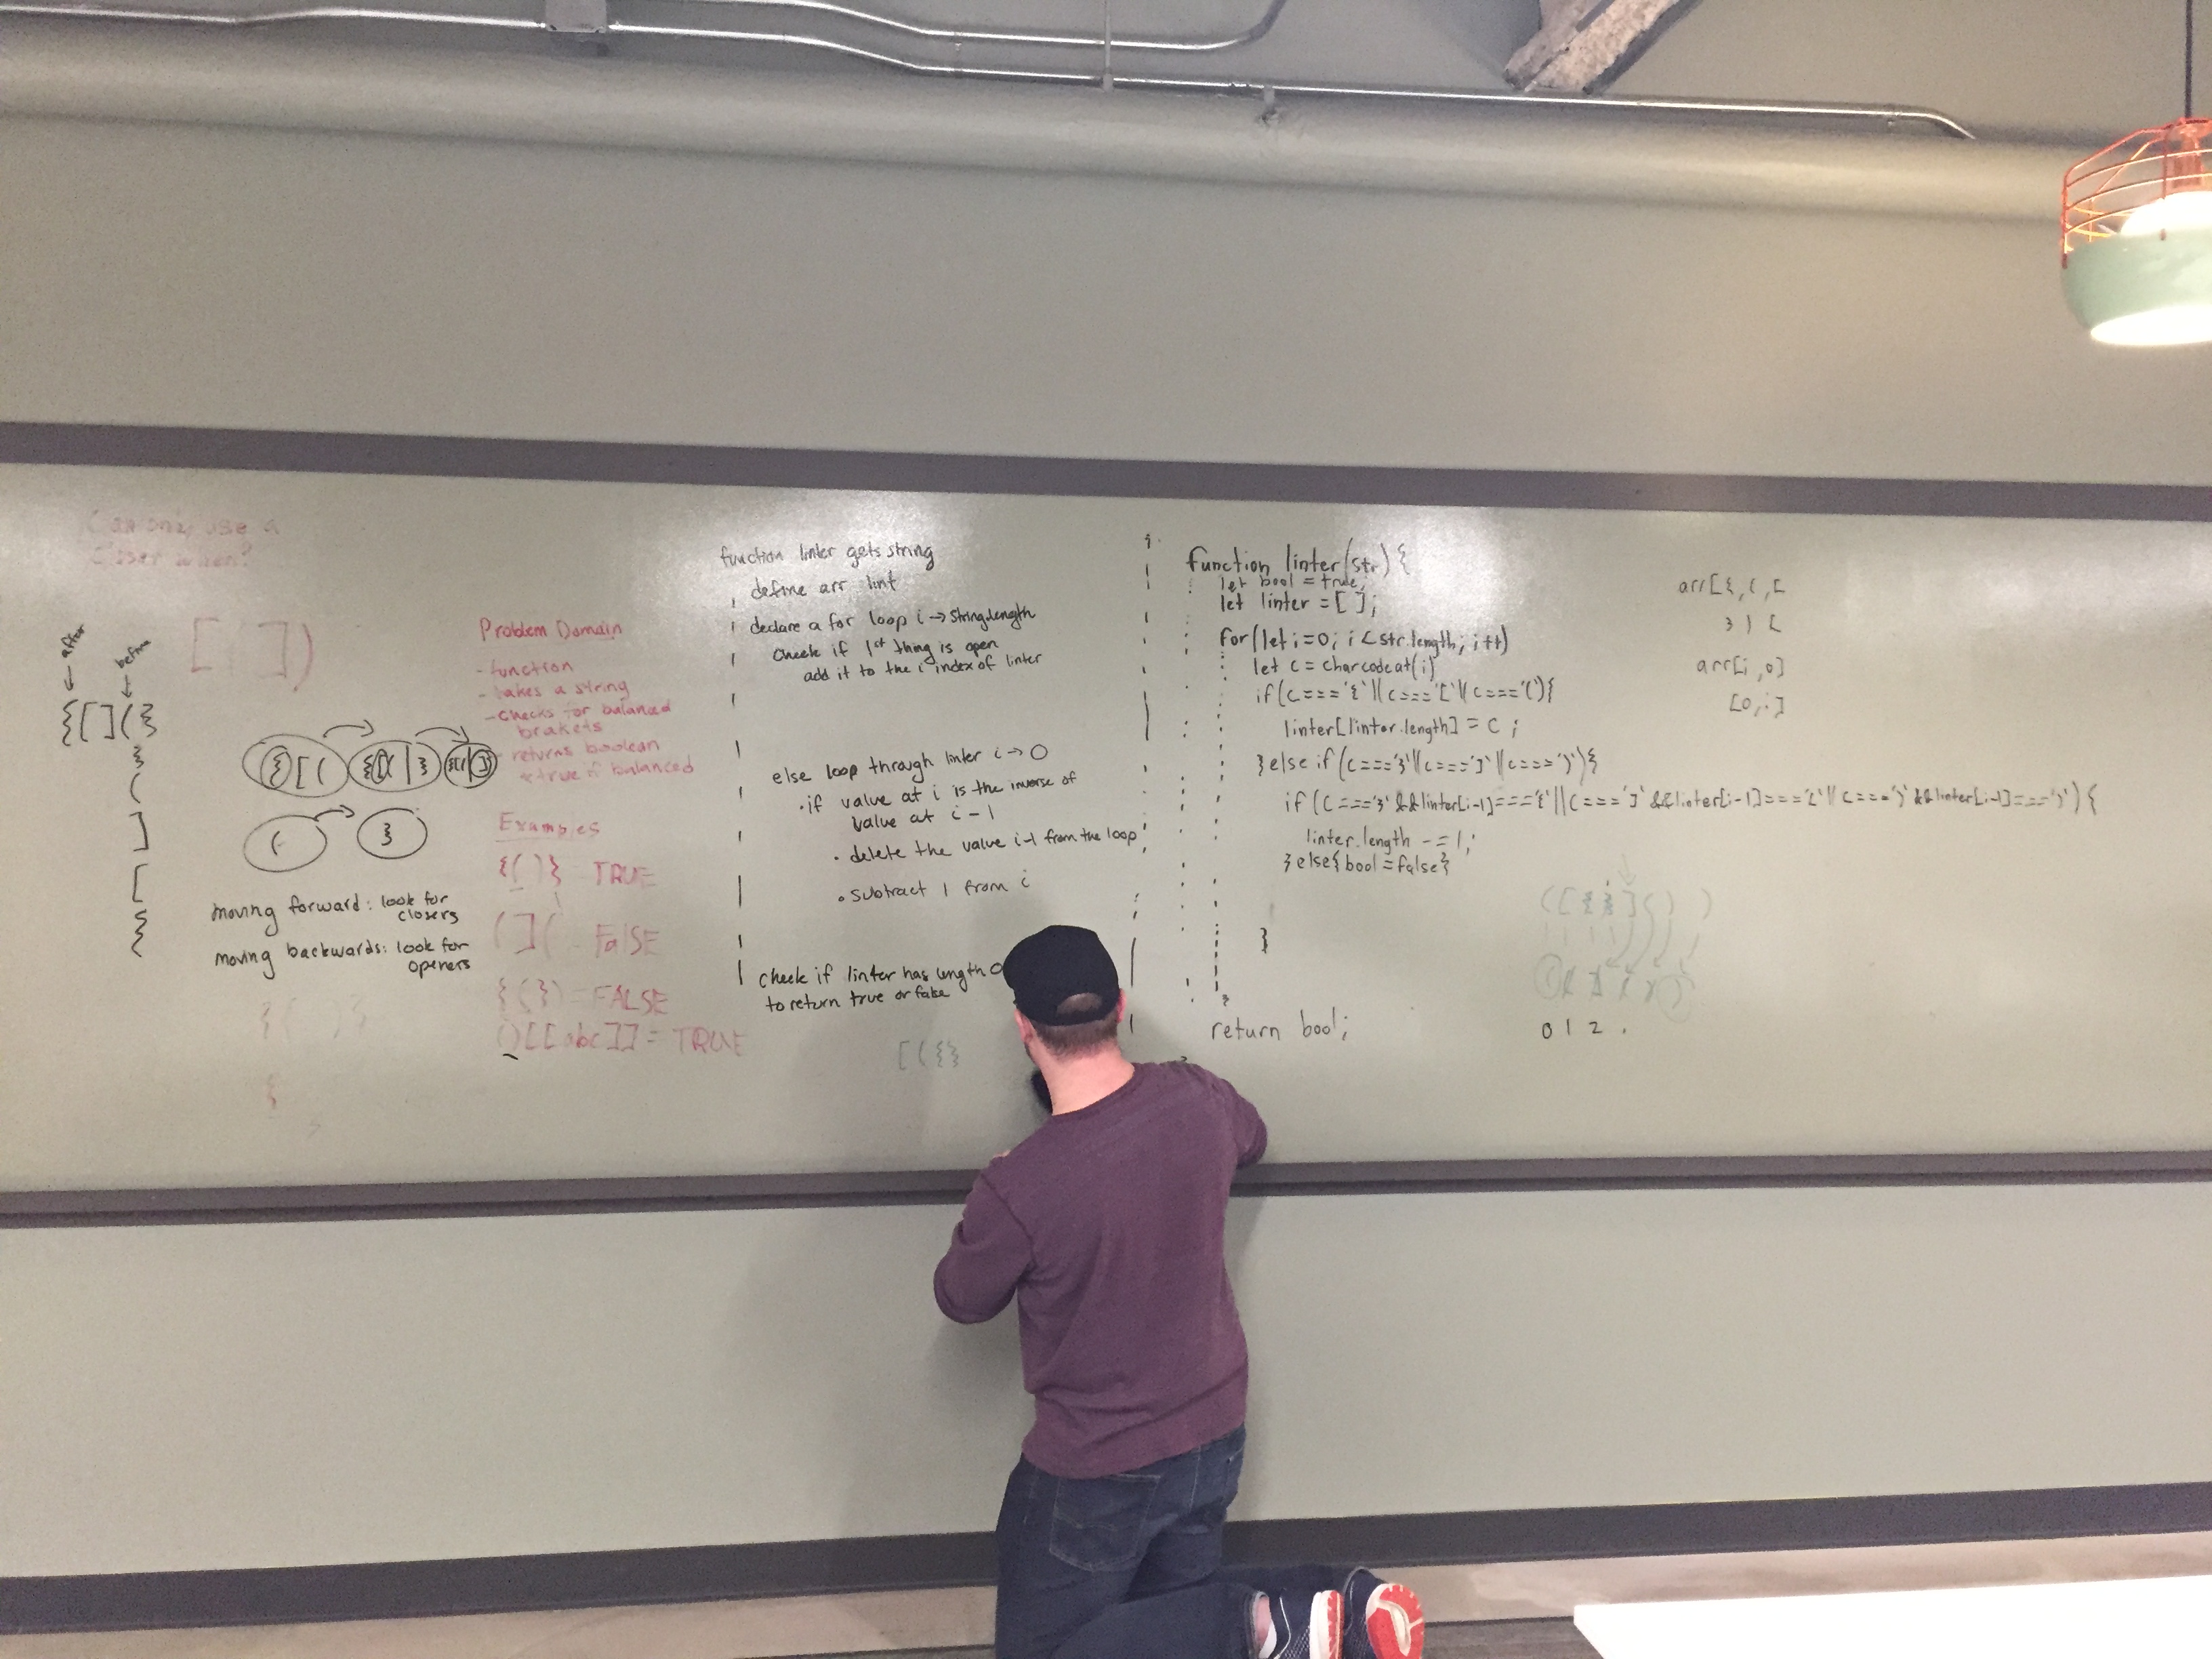 Can only use a
closer when?
[ ( ] )
after
before
{[](}
}
(
]
[
{
{[( {[(|}
( }
moving forward: look for
closers
moving backwards: look for
openers
{( )}
{
Problem Domain
- function
- takes a string
- checks for balanced
brakets
- returns boolean
* true if balanced
Examples
{()} = TRUE
(]( = FalSE
{(}) = FALSE
()[[abc]] = TRUE
function linter gets string
define arr lint
declare a for loop i → String.length
Check if 1st thing is open
add it to the i index of linter
else loop through linter i → 0
• if value at i is the inverse of
value at i - 1
• delete the value i-1 from the loop
• subtract 1 from i
check if linter has length 0
to return true or false
[({}
function linter(str){
let bool = true;
let linter = [ ];
for(let i=0; i<str.length; i++)
let c = charcodeat(i)
if(c==='{'||c==='['||c==='('){
linter[linter.length] = c ;
}else if(c==='}'||c===']'||c===')'){
if(c==='}'&&linter[i-1]==='{'||c===']'&&linter[i-1]==='['||c===')'&&linter[i-1]===')'){
linter.length -= 1;
}else{bool=false}
}
}
return bool;
}
arr[{,(,[
} ) [
arr[i,0]
[0,i]
([{}]())
0 1 2 .